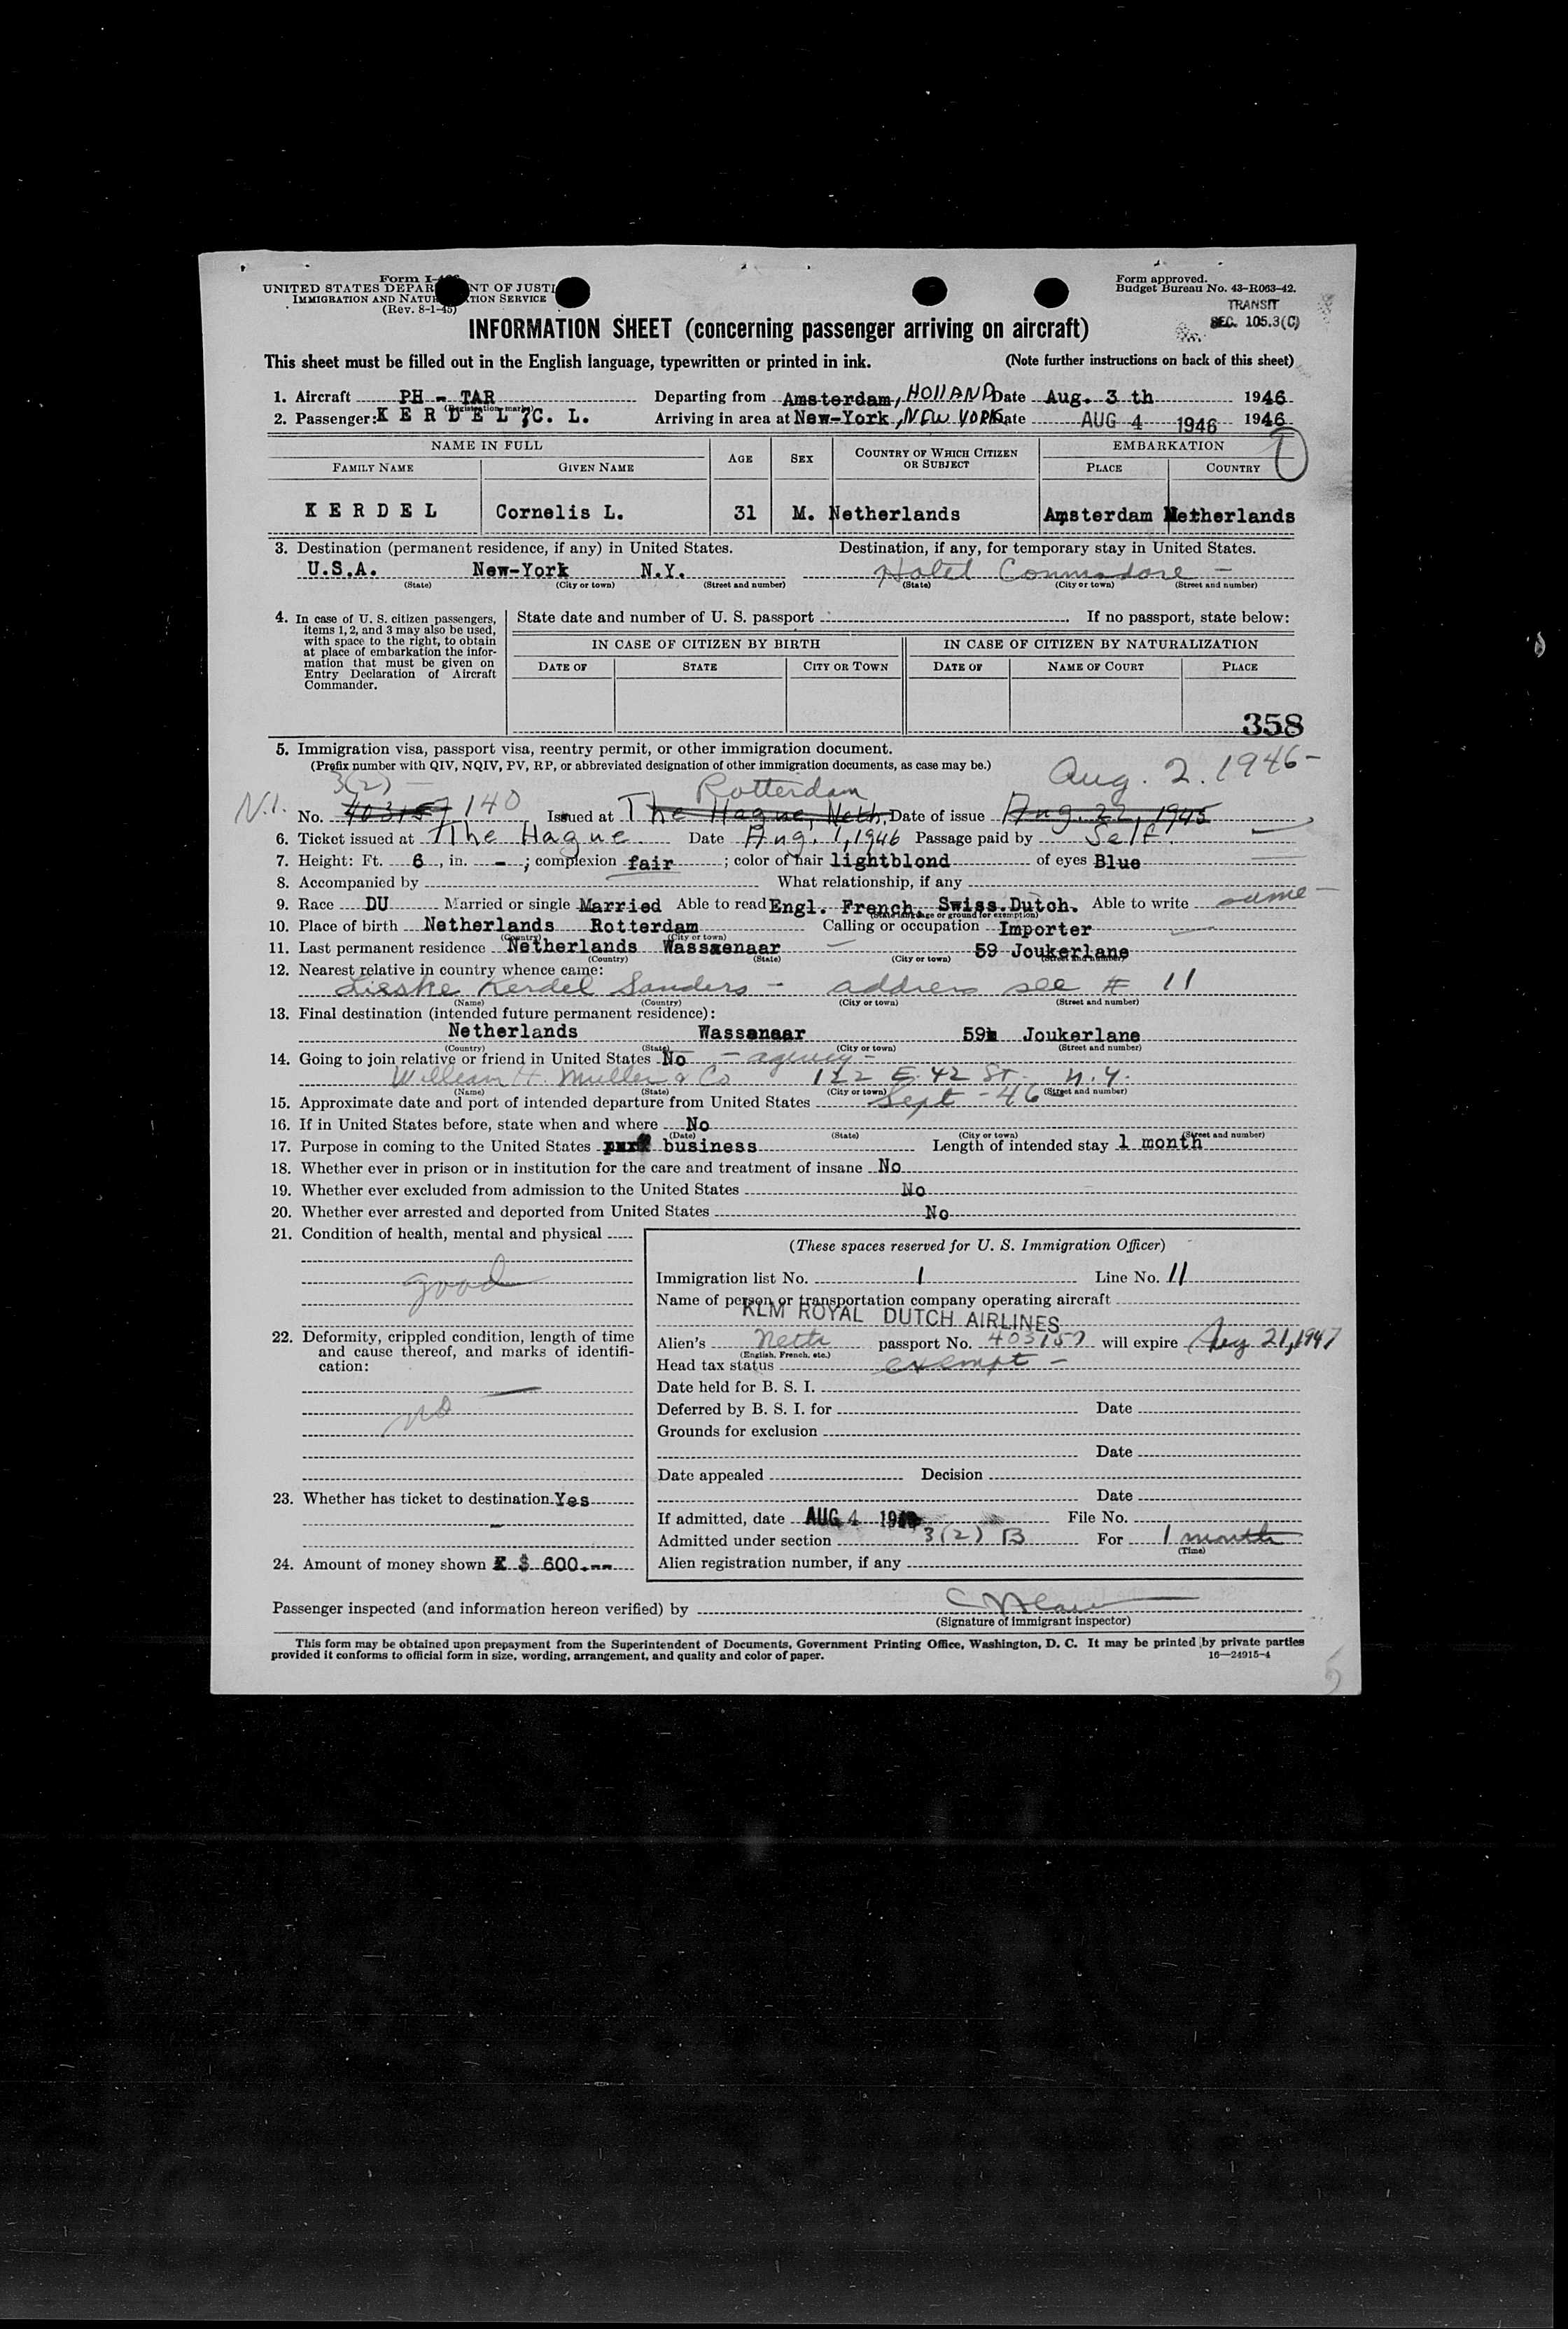 Form I-466
UNITED STATES DEPAR NT OF JUSTI
IMMIGRATION AND NATUR TION SERVICE
(Rev. 8-1-45)
Form approved.
Budget Bureau No. 43-R063-42.
TRANSIT
SEC. 105.3(C)
INFORMATION SHEET (concerning passenger arriving on aircraft)
This sheet must be filled out in the English language, typewritten or printed in ink. (Note further instructions on back of this sheet)
1. Aircraft PH - TAR Departing from Amsterdam, HOLLAND Date Aug. 3 th 1946
(Registration marks)
2. Passenger: K E R D E L , C. L. Arriving in area at New-York, NEW YORK Date AUG 4 1946 1946
NAME IN FULL AGE SEX COUNTRY OF WHICH CITIZEN OR SUBJECT EMBARKATION
FAMILY NAME GIVEN NAME PLACE COUNTRY
K E R D E L Cornelis L. 31 M. Netherlands Amsterdam Netherlands
3. Destination (permanent residence, if any) in United States. Destination, if any, for temporary stay in United States.
U.S.A. New-York N.Y. Hotel Commodore -
(State) (City or town) (Street and number) (State) (City or town) (Street and number)
4. In case of U. S. citizen passengers, items 1, 2, and 3 may also be used, with space to the right, to obtain at place of embarkation the information that must be given on Entry Declaration of Aircraft Commander.
State date and number of U. S. passport . If no passport, state below:
IN CASE OF CITIZEN BY BIRTH IN CASE OF CITIZEN BY NATURALIZATION
DATE OF STATE CITY OR TOWN DATE OF NAME OF COURT PLACE
358
5. Immigration visa, passport visa, reentry permit, or other immigration document.
(Prefix number with QIV, NQIV, PV, RP, or abbreviated designation of other immigration documents, as case may be.)
3(2) - Rotterdam Aug. 2. 1946-
N.I. No. 403157 140 Issued at The Hague, Neth. Date of issue Aug. 22, 1945
6. Ticket issued at The Hague Date Aug. 1, 1946 Passage paid by Self.
7. Height: Ft. 6, in. - ; complexion fair ; color of hair lightblond of eyes Blue
8. Accompanied by What relationship, if any
9. Race DU Married or single Married Able to read Engl. French Swiss. Dutch. Able to write same -
(State language or ground for exemption)
10. Place of birth Netherlands Rotterdam Calling or occupation Importer
(Country) (City or town)
11. Last permanent residence Netherlands Wassenaar 59 Joukerlane
(Country) (State) (City or town) (Street and number)
12. Nearest relative in country whence came:
Lieske Kerdel Sanders - address see # 11
(Name) (Country) (City or town) (Street and number)
13. Final destination (intended future permanent residence):
Netherlands Wassenaar 59 Joukerlane
(Country) (State) (City or town) (Street and number)
14. Going to join relative or friend in United States No - agency -
William H. Muller & Co 122 E. 42 St. N.Y.
(Name) (State) (City or town) (Street and number)
15. Approximate date and port of intended departure from United States Sept - 46
16. If in United States before, state when and where No
(Date) (State) (City or town) (Street and number)
17. Purpose in coming to the United States business Length of intended stay 1 month
18. Whether ever in prison or in institution for the care and treatment of insane No
19. Whether ever excluded from admission to the United States No
20. Whether ever arrested and deported from United States No
21. Condition of health, mental and physical
good
22. Deformity, crippled condition, length of time and cause thereof, and marks of identification:
no
23. Whether has ticket to destination Yes
24. Amount of money shown $ 600.--
(These spaces reserved for U. S. Immigration Officer)
Immigration list No. 1 Line No. 11
Name of person or transportation company operating aircraft
KLM ROYAL DUTCH AIRLINES
Alien's Neth passport No. 403157 will expire Aug 21, 1947
(English, French, etc.)
Head tax status exempt -
Date held for B. S. I.
Deferred by B. S. I. for Date
Grounds for exclusion
Date
Date appealed Decision
Date
If admitted, date AUG 4 File No.
Admitted under section 3(2) B For 1 month
(Time)
Alien registration number, if any
Passenger inspected (and information hereon verified) by
(Signature of immigrant inspector)
This form may be obtained upon prepayment from the Superintendent of Documents, Government Printing Office, Washington, D. C. It may be printed by private parties
provided it conforms to official form in size, wording, arrangement, and quality and color of paper. 16—24915-4